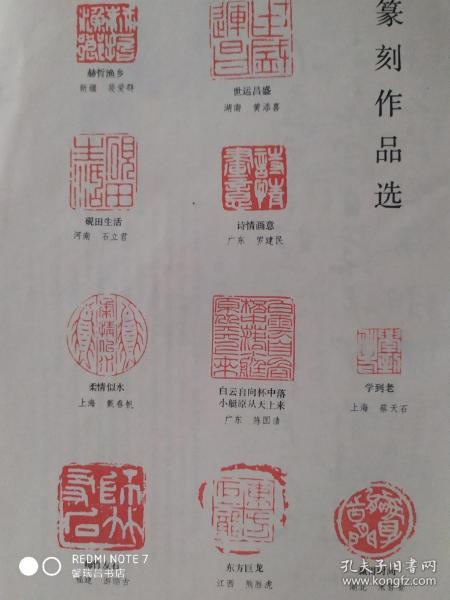 篆刻作品选
赫哲渔乡
新疆 裴爱群
世运昌盛
湖南 黄添喜
砚田生活
河南 石立君
诗情画意
广东 罗建民
柔情似水
上海 戴春帆
白云自向杯中落
小艇原从天上来
广东 陈国清
学到老
上海 蔡天石
师竹友石
福建
东方巨龙
江西 熊胜虎
湖北
REDMI NOTE 7
馨瑞吕书店
孔夫子旧书网